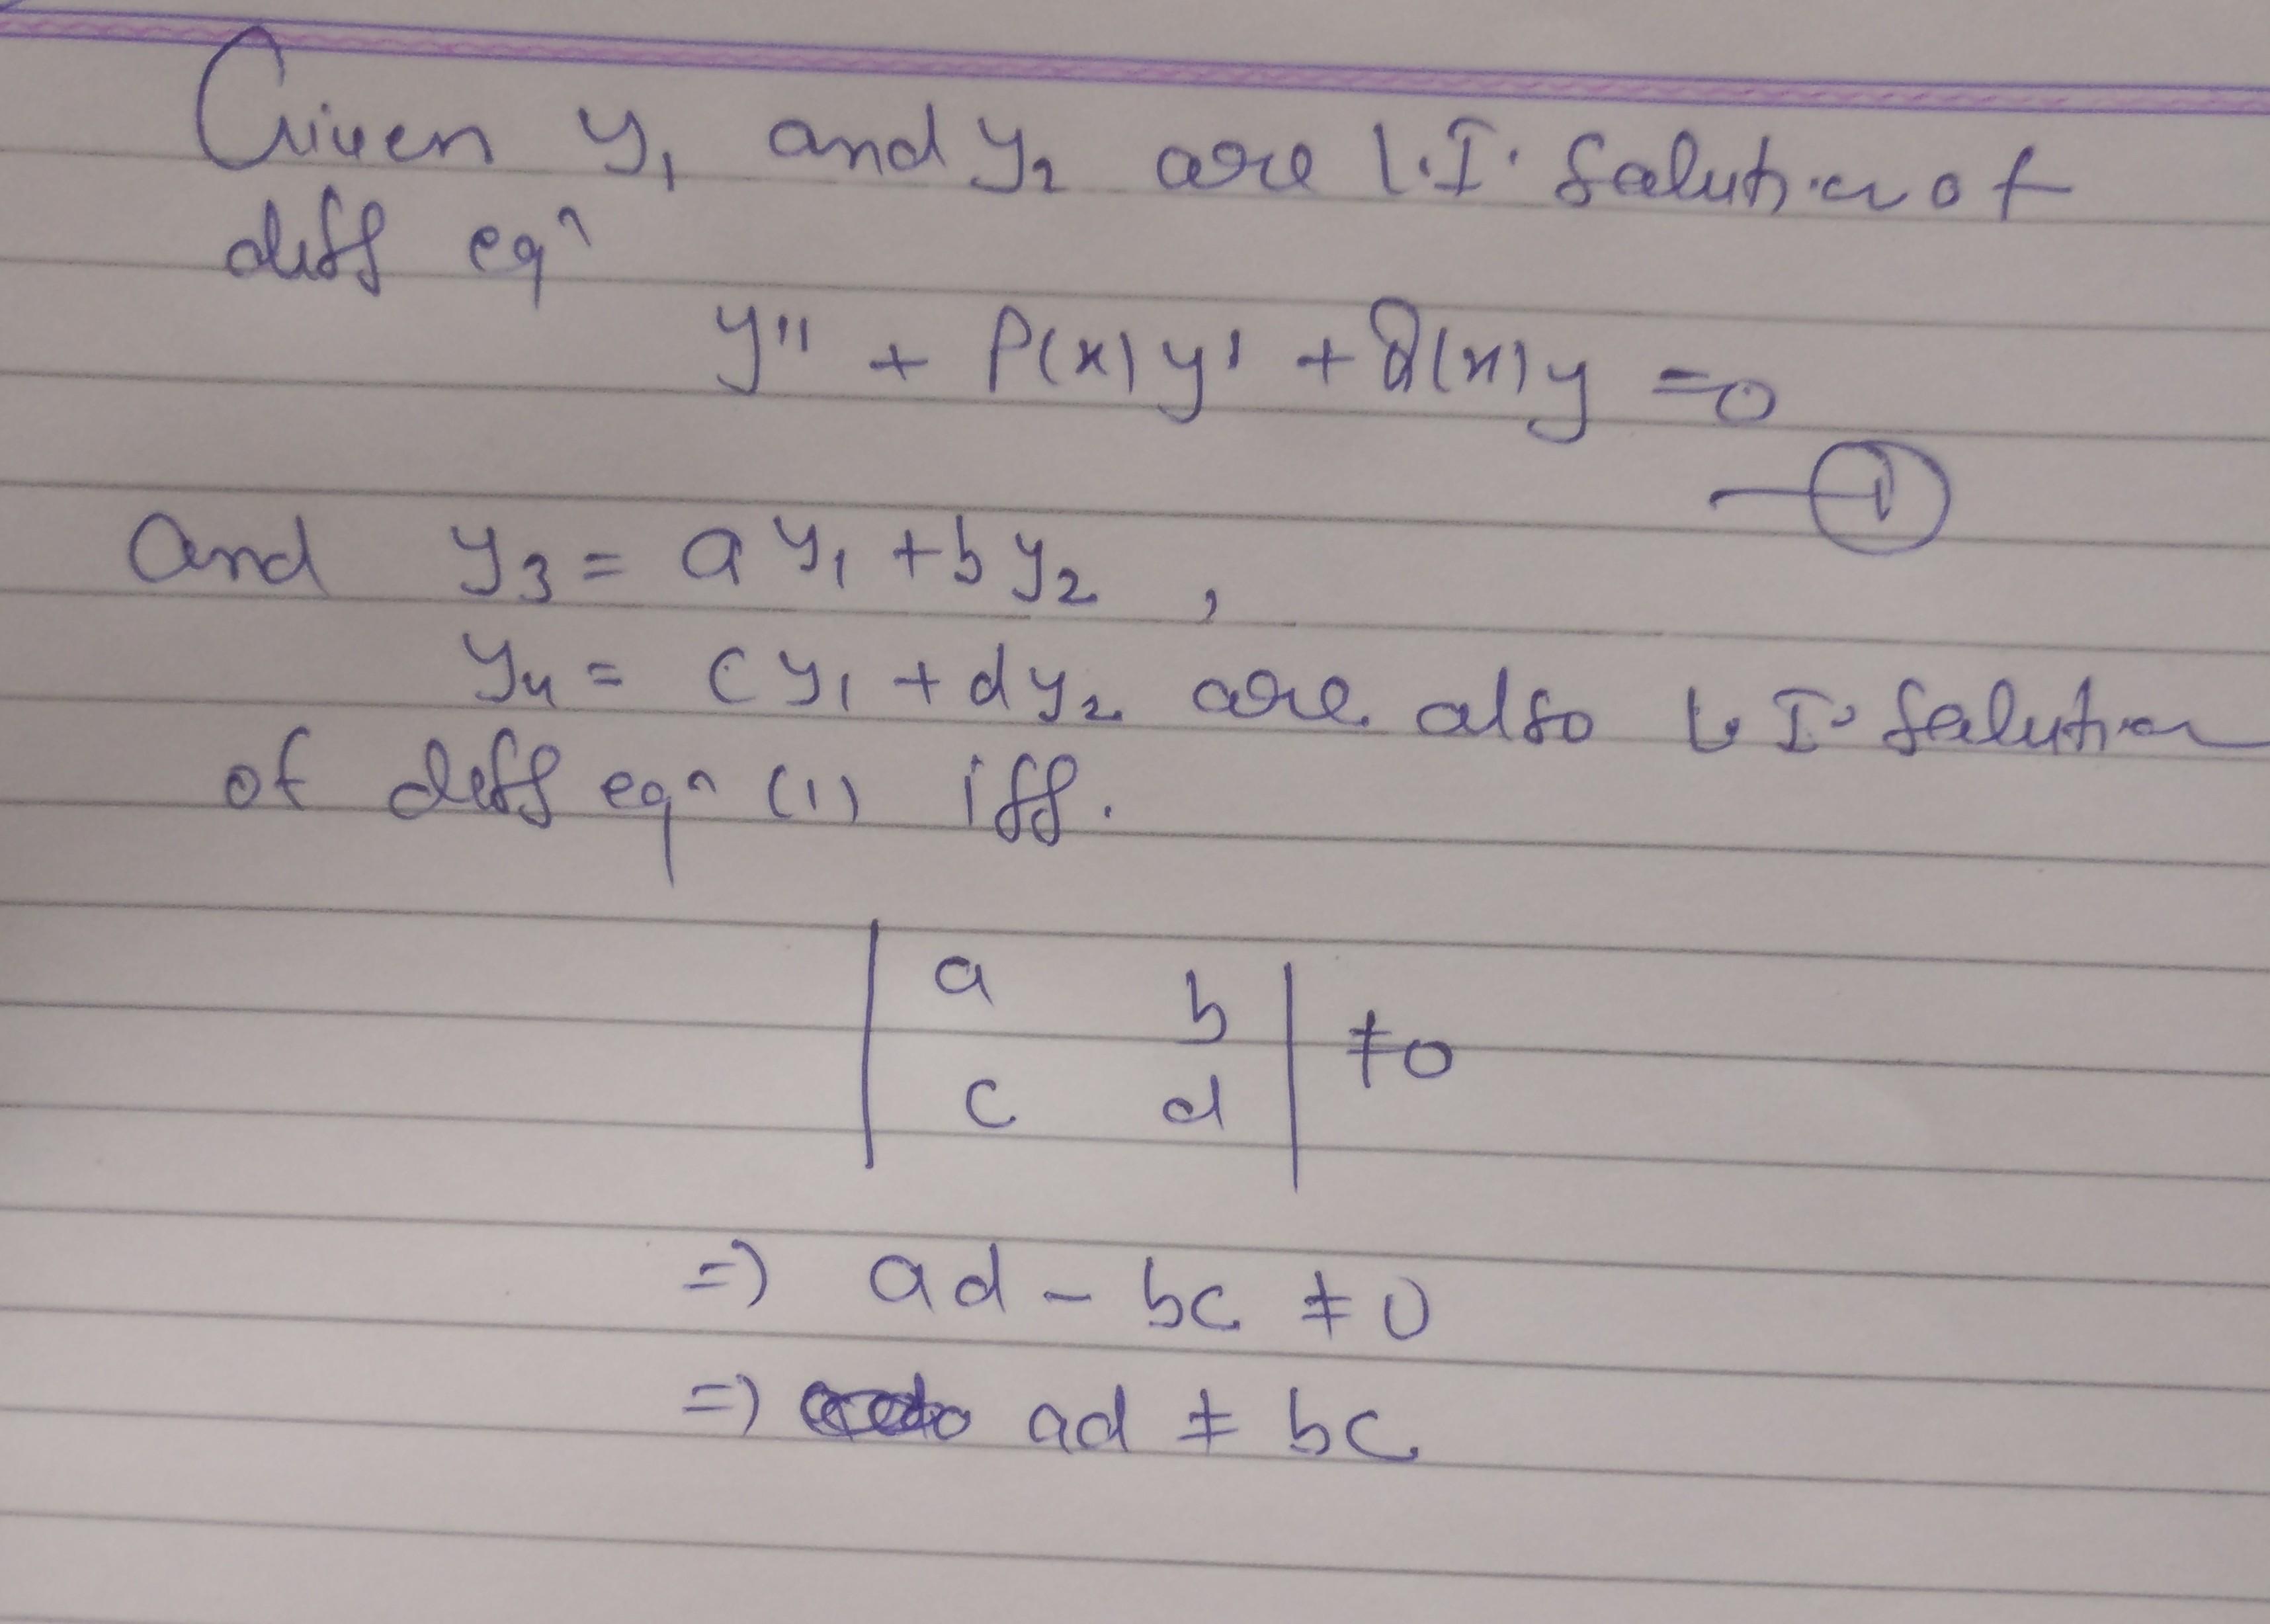 Given y₁ and y₂ are L.I. Solution of
diff eqⁿ
y'' + P(x) y' + Q(x) y = 0
— ①
and y₃ = a y₁ + b y₂ ,
y₄ = c y₁ + d y₂ are also L.I. Solution
of diff eqⁿ (1) iff.
| a b |
| c d | ≠ 0
⇒ ad - bc ≠ 0
⇒ ad ≠ bc